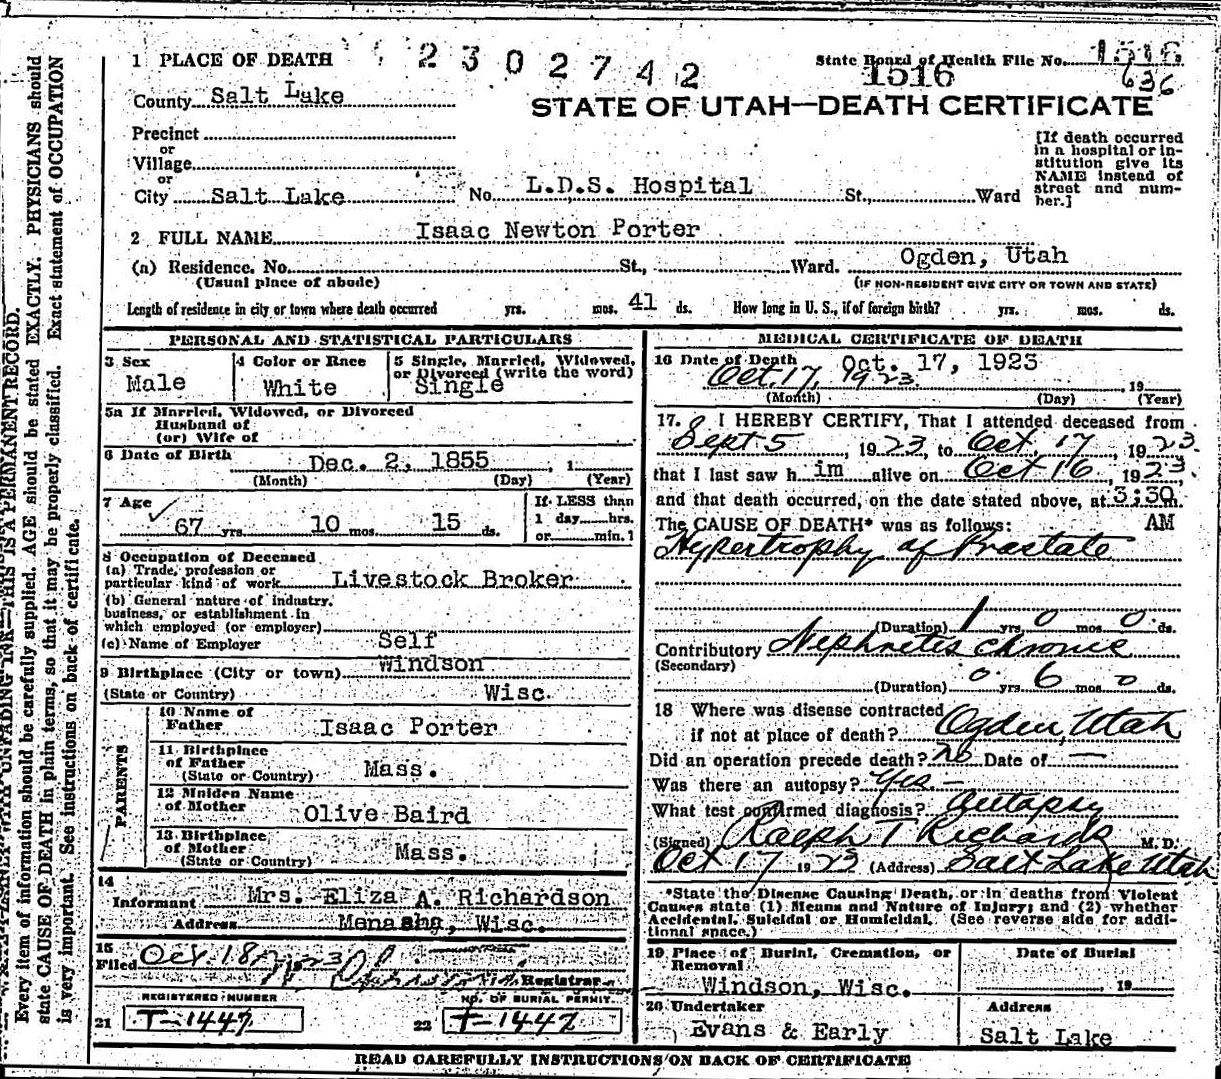 1 PLACE OF DEATH
2302742
State Board of Health File No. 1516
1516
636
County Salt Lake
STATE OF UTAH—DEATH CERTIFICATE
Precinct
or
Village
or
City Salt Lake No. L.D.S. Hospital St., Ward
[If death occurred
in a hospital or in-
stitution give its
NAME instead of
street and num-
ber.]
2 FULL NAME Isaac Newton Porter
(a) Residence. No. St., Ward. Ogden, Utah
(Usual place of abode) (IF NON-RESIDENT GIVE CITY OR TOWN AND STATE)
Length of residence in city or town where death occurred yrs. mos. 41 ds. How long in U. S., if of foreign birth? yrs. mos. ds.
PERSONAL AND STATISTICAL PARTICULARS
3 Sex
Male
4 Color or Race
White
5 Single, Married, Widowed,
or Divorced (write the word)
Single
5a If Married, Widowed, or Divorced
Husband of
(or) Wife of
6 Date of Birth
Dec. 2, 1855, 1
(Month) (Day) (Year)
7 Age
67 yrs. 10 mos. 15 ds.
If LESS than
1 day hrs.
or min.1
8 Occupation of Deceased
(a) Trade, profession or
particular kind of work Livestock Broker
(b) General nature of industry,
business, or establishment in
which employed (or employer)
(c) Name of Employer Self
9 Birthplace (City or town) Windson
(State or Country) Wisc.
PARENTS
10 Name of
Father Isaac Porter
11 Birthplace
of Father
(State or Country) Mass.
12 Maiden Name
of Mother Olive Baird
13 Birthplace
of Mother
(State or Country) Mass.
14
Informant Mrs. Eliza A. Richardson
Address Menasha, Wisc.
15
Filed Oct. 18 1923
Registrar
REGISTERED NUMBER
21 T-1447
NO. OF BURIAL PERMIT
22 T-1447
MEDICAL CERTIFICATE OF DEATH
16 Date of Death Oct. 17, 1923
Oct. 17, 1923, 19
(Month) (Day) (Year)
17. I HEREBY CERTIFY, That I attended deceased from
Sept 5, 1923, to Oct. 17, 1923.
that I last saw him alive on Oct 16, 1923,
and that death occurred, on the date stated above, at 3:30 m.
AM
The CAUSE OF DEATH* was as follows:
Hypertrophy of Prostate
(Duration) 1 yrs 0 mos 0 ds.
Contributory Nephretis chronic
(Secondary)
(Duration) 0 yrs 6 mos 0 ds.
18 Where was disease contracted
if not at place of death? Ogden, Utah
Did an operation precede death? no Date of —
Was there an autopsy? Yes. —
What test confirmed diagnosis? Autopsy
(Signed) Ralph T Richards M. D.
Oct 17 1923 (Address) Salt Lake Utah
*State the Disease Causing Death, or in deaths from Violent
Causes state (1) Means and Nature of Injury; and (2) whether
Accidental, Suicidal or Homicidal. (See reverse side for addi-
tional space.)
19 Place of Burial, Cremation, or
Removal
Windson, Wisc.
Date of Burial
, 19
20 Undertaker
Evans & Early
Address
Salt Lake
READ CAREFULLY INSTRUCTIONS ON BACK OF CERTIFICATE
THIS IS A PERMANENT RECORD.
Every item of information should be carefully supplied. AGE should be stated EXACTLY. PHYSICIANS should
state CAUSE OF DEATH in plain terms, so that it may be properly classified. Exact statement of OCCUPATION
is very important. See instructions on back of certificate.